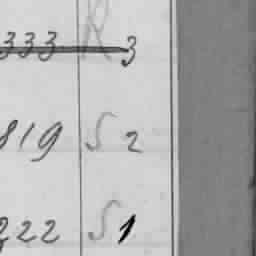 333 R 3
819 S 2
222 S 1